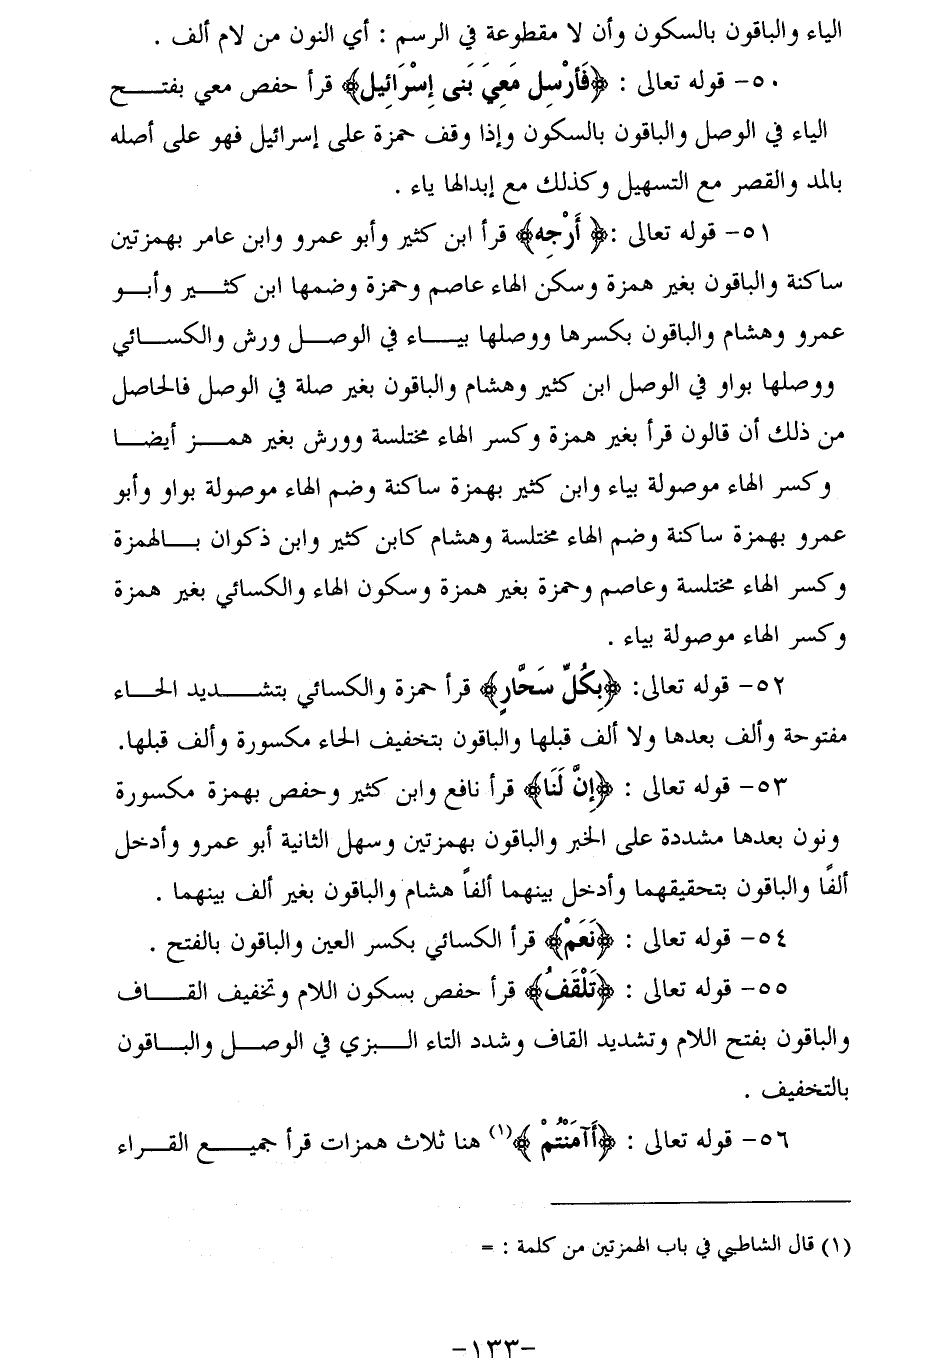 الياء والباقون بالسكون وأن لا مقطوعة في الرسم : أي النون من لام ألف .
٥٠- قوله تعالى : ﴿فَأَرْسِل مَعِيَ بَنى إِسْرَائِيل﴾ قرأ حفص معي بفتح
الياء في الوصل والباقون بالسكون وإذا وقف حمزة على إسرائيل فهو على أصله
بالمد والقصر مع التسهيل وكذلك مع إبدالها ياء .
٥١- قوله تعالى :﴿ أَرْجِه﴾ قرأ ابن كثير وأبو عمرو وابن عامر بهمزتين
ساكنة والباقون بغير همزة وسكن الهاء عاصم وحمزة وضمها ابن كثير وأبو
عمرو وهشام والباقون بكسرها ووصلها بياء في الوصل ورش والكسائي
ووصلها بواو في الوصل ابن كثير وهشام والباقون بغير صلة في الوصل فالحاصل
من ذلك أن قالون قرأ بغير همزة وكسر الهاء مختلسة وورش بغير همز أيضا
وكسر الهاء موصولة بياء وابن كثير بهمزة ساكنة وضم الهاء موصولة بواو وأبو
عمرو بهمزة ساكنة وضم الهاء مختلسة وهشام كابن كثير وابن ذكوان بالهمزة
وكسر الهاء مختلسة وعاصم وحمزة بغير همزة وسكون الهاء والكسائي بغير همزة
وكسر الهاء موصولة بياء .
٥٢- قوله تعالى: ﴿بِكُلِّ سَحَّارٍ﴾ قرأ حمزة والكسائي بتشديد الحاء
مفتوحة وألف بعدها ولا ألف قبلها والباقون بتخفيف الحاء مكسورة وألف قبلها.
٥٣- قوله تعالى : ﴿إِنَّ لَنَا﴾ قرأ نافع وابن كثير وحفص بهمزة مكسورة
ونون بعدها مشددة على الخبر والباقون بهمزتين وسهل الثانية أبو عمرو وأدخل
ألفًا والباقون بتحقيقهما وأدخل بينهما ألفاً هشام والباقون بغير ألف بينهما .
٥٤- قوله تعالى : ﴿نَعَمْ﴾ قرأ الكسائي بكسر العين والباقون بالفتح .
٥٥- قوله تعالى : ﴿تَلْقَفُ﴾ قرأ حفص بسكون اللام وتخفيف القاف
والباقون بفتح اللام وتشديد القاف وشدد التاء البزي في الوصل والباقون
بالتخفيف .
٥٦- قوله تعالى : ﴿أَآمَنْتُمْ ﴾(١) هنا ثلاث همزات قرأ جميع القراء
(١) قال الشاطبي في باب الهمزتين من كلمة : =
-١٣٣-